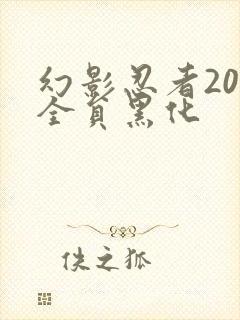 幻影忍者20
全員黑化
佚之狐